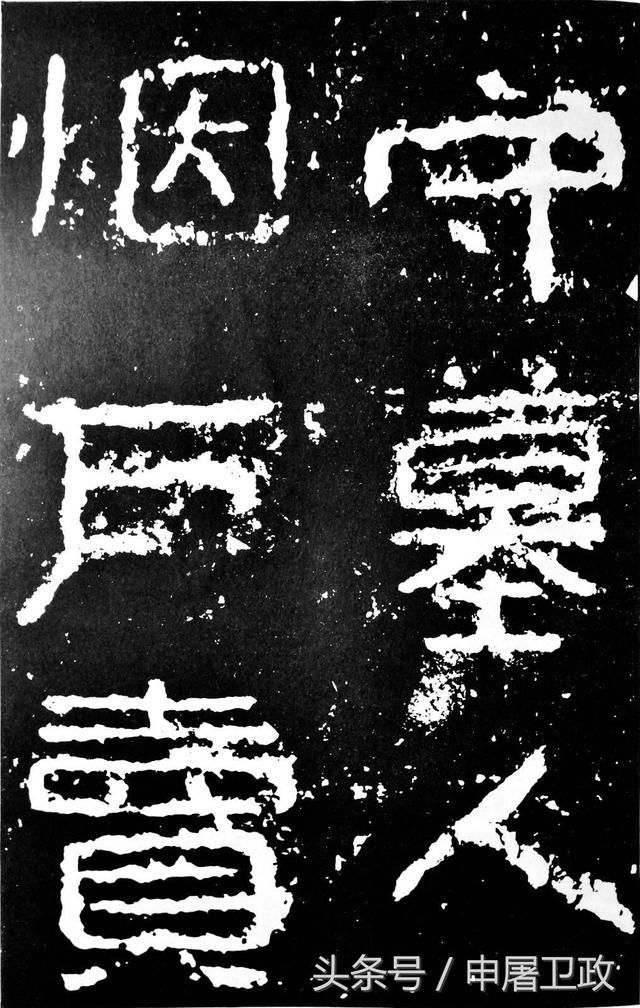 守墓人
烟户賣
头条号 / 申屠卫政